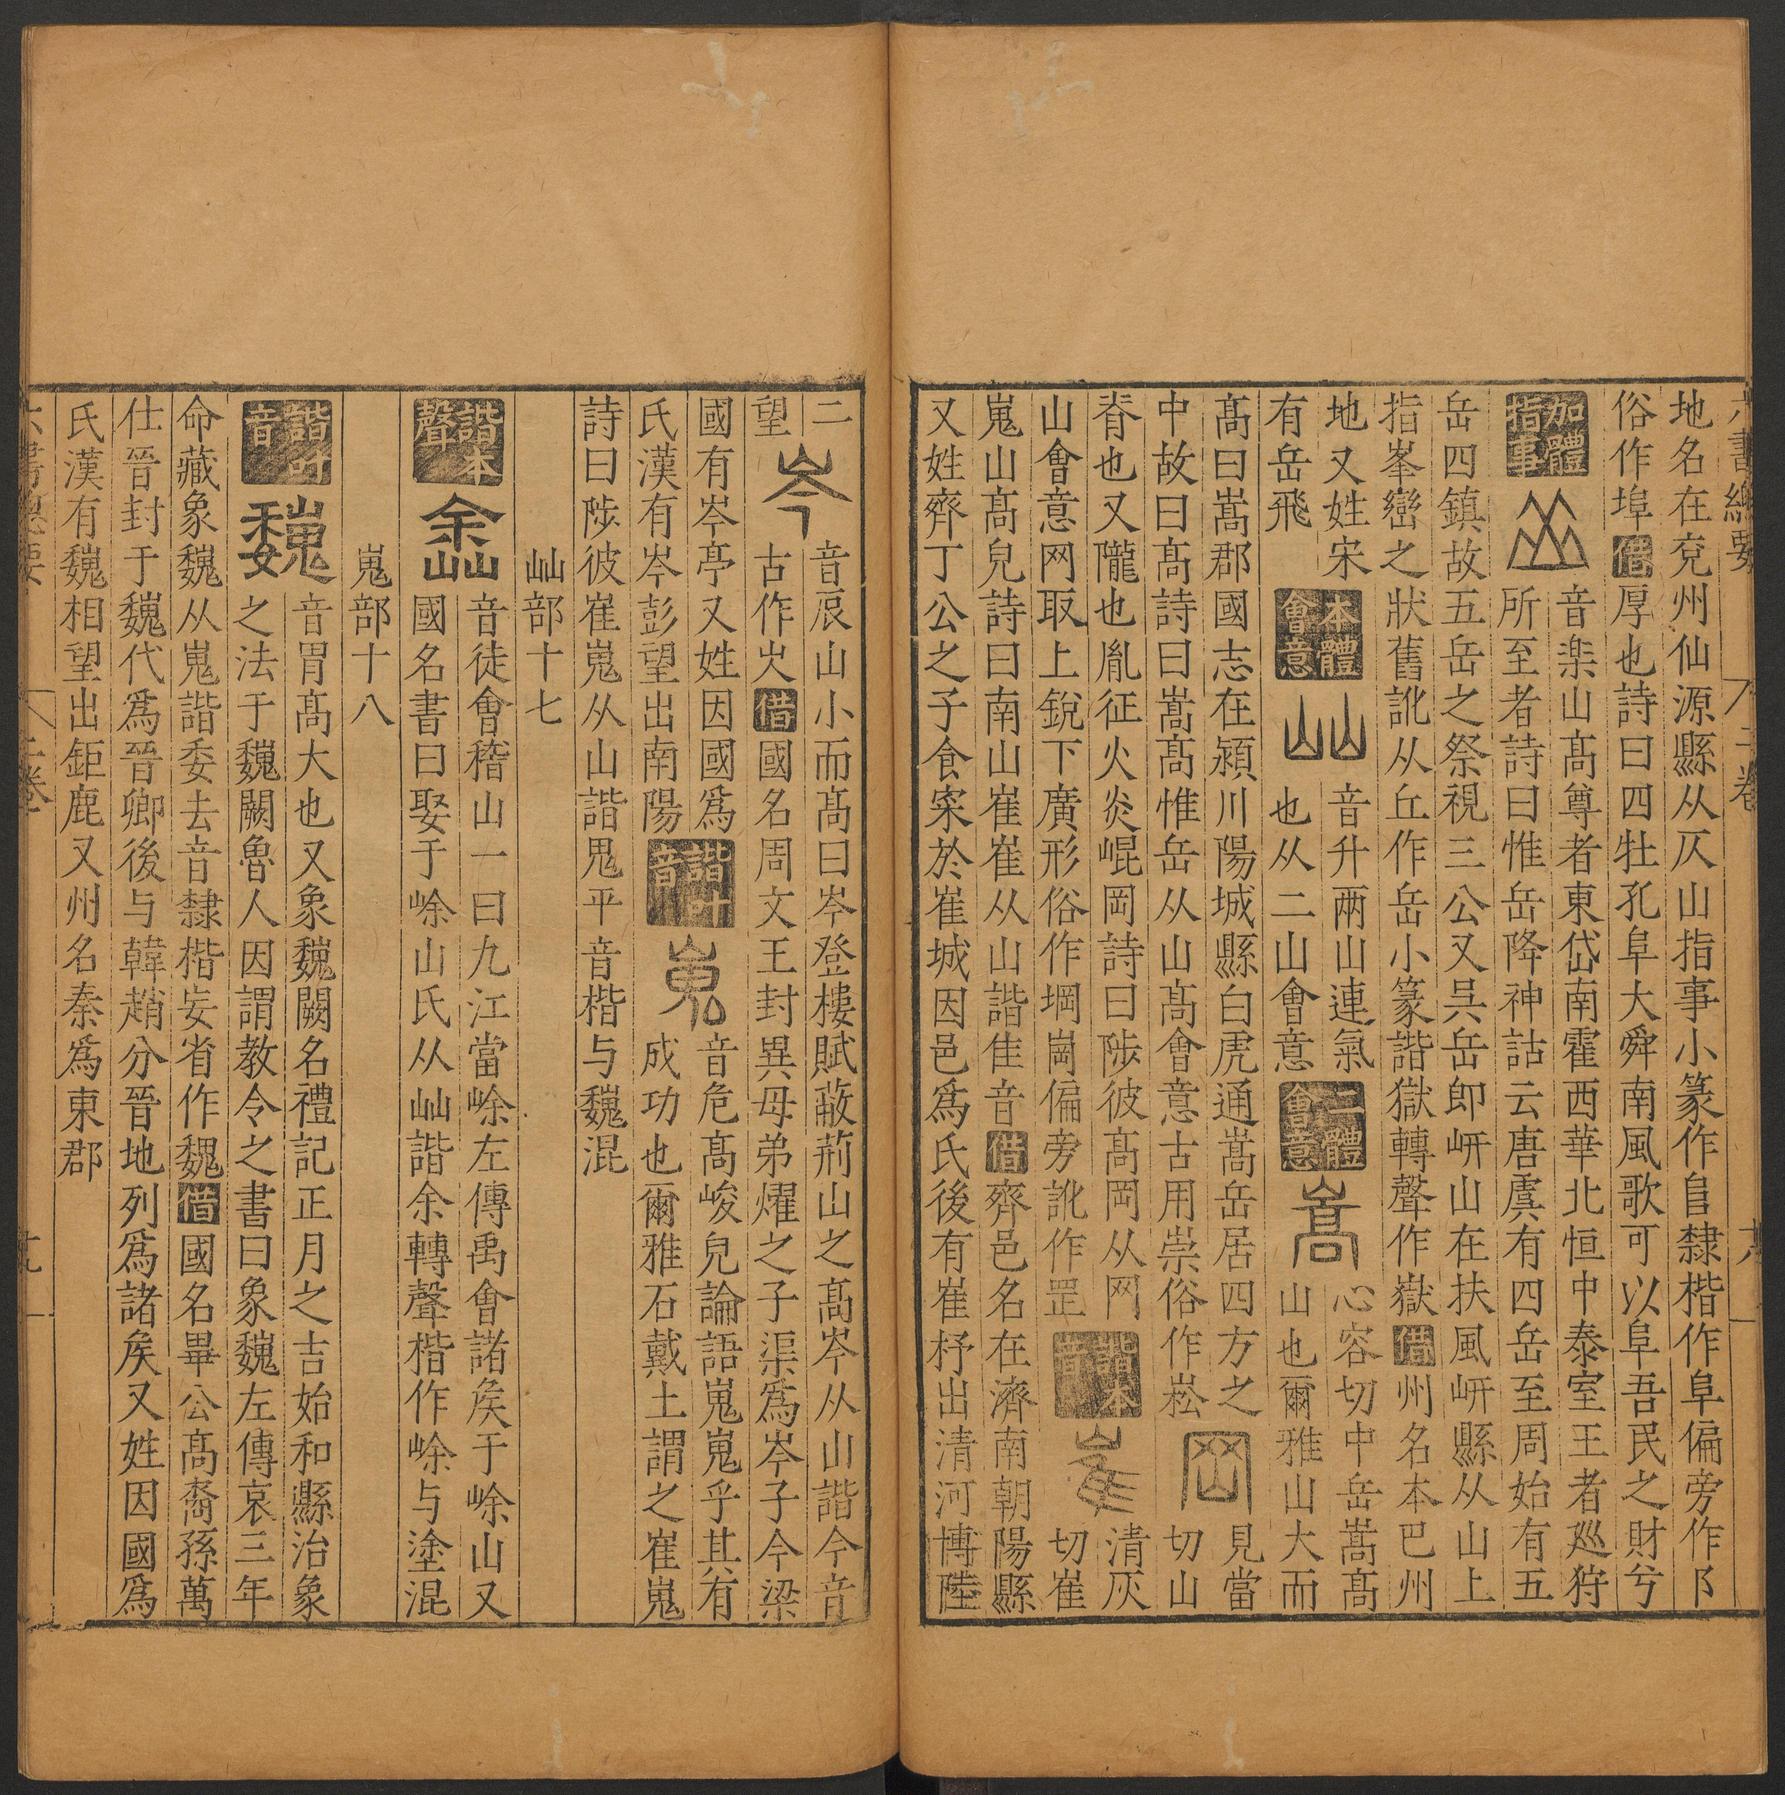 六書總要 二卷 六
地名在兗州仙源縣从仄山指事小篆作𨸏隸楷作阜偏旁作阝
俗作埠借厚也詩曰四牡孔阜大舜南風歌可以阜吾民之財兮
加體指事
音楽山髙尊者東岱南霍西華北恒中泰室王者廵狩
所至者詩曰惟岳降神詁云唐虞有四岳至周始有五
岳四鎮故五岳之祭視三公又呉岳即岍山在扶風岍縣从山上
指峯巒之狀舊訛从丘作岳小篆諧獄轉聲作嶽借州名本巴州
地又姓宋
有岳飛
本體會意
屾
音升兩山連氣
也从二山會意
二體會意
嵩
心容切中岳嵩髙
山也爾雅山大而
髙曰嵩郡國志在潁川陽城縣白虎通嵩岳居四方之
中故曰髙詩曰嵩髙惟岳从山髙會意古用崇俗作崧
岡
見當
切山
脊也又隴也胤征火炎崐岡詩曰陟彼髙岡从网
山會意网取上銳下廣形俗作堈崗偏旁訛作罡
諧本音
崔
清灰
切崔
嵬山髙皃詩曰南山崔崔从山諧隹音借齊邑名在濟南朝陽縣
又姓齊丁公之子食寀於崔城因邑爲氏後有崔杼出清河博陸
二
望
岑
音辰山小而髙曰岑登樓賦蔽荊山之髙岑从山諧今音
古作㞤借國名周文王封異母弟燿之子渠爲岑子今梁
國有岑亭又姓因國爲
氏漢有岑彭望出南陽
諧叶音
嵬
音危髙峻皃論語嵬嵬乎其有
成功也爾雅石戴土謂之崔嵬
詩曰陟彼崔嵬从山諧鬼平音楷与巍混
屾部十七
諧本聲
嵞
音徒會稽山一曰九江當嵞左傳禹會諸矦于嵞山又
國名書曰娶于嵞山氏从屾諧余轉聲楷作嵞与塗混
嵬部十八
諧叶音
巍
音胃髙大也又象巍闕名禮記正月之吉始和縣治象
之法于巍闕魯人因謂教令之書曰象巍左傳哀三年
命藏象巍从嵬諧委去音隸楷妄省作魏借國名畢公髙裔孫萬
仕晉封于魏代爲晉卿後与韓趙分晉地列爲諸矦又姓因國爲
氏漢有魏相望出鉅鹿又州名秦爲東郡
六書總要 二卷